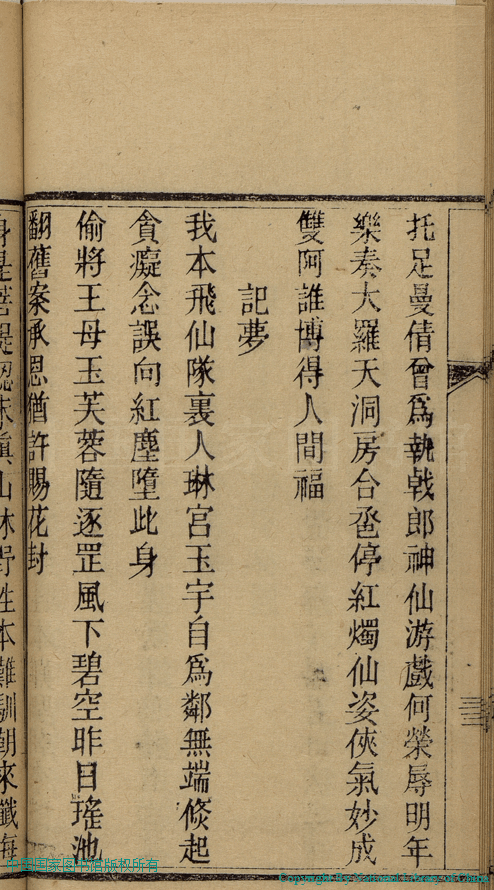 托足曼倩曾爲執戟郎神仙游戲何榮辱明年
樂奏大羅天洞房合卺停紅燭仙姿俠氣妙成
雙阿誰博得人間福
記夢
我本飛仙隊裏人琳宮玉宇自爲鄰無端倏起
貪癡念誤向紅塵墮此身
偷將王母玉芙蓉隨逐罡風下碧空昨日瑤池
翻舊案承恩猶許賜花封
身是菩提認未眞山林野性本難馴朝來懺悔
中国国家图书馆版权所有